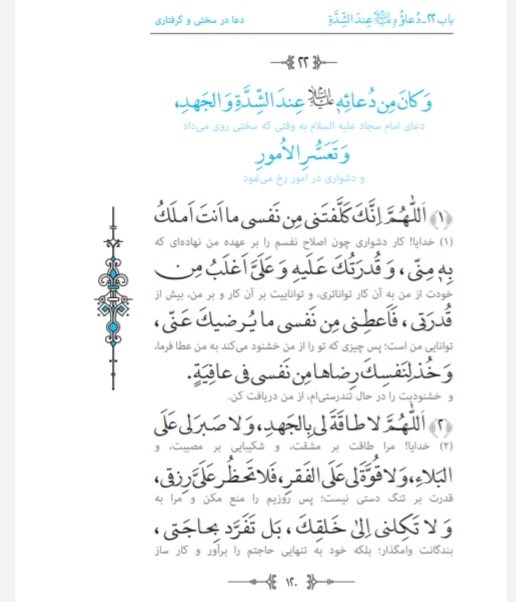 باب ۲۲-دُعاؤُهُ عِندَ الشِّدَّةِ
دعا در سختی و گرفتاری
۲۲
وَ كانَ مِن دُعائِهِ عَلَيْهِ السَّلامُ عِندَ الشِّدَّةِ وَ الجَهدِ،
دعای امام سجاد علیه السلام به وقتی که سختی روی می‌داد
وَ تَعَسُّرِ الاُمورِ
و دشواری در امور رخ می‌نمود
(۱) اَللّٰهُمَّ اِنَّكَ كَلَّفتَنى مِن نَفسى ما اَنتَ اَملَكُ
(۱) خدایا! کار دشواری چون اصلاح نفسم را بر عهده من نهاده‌ای که
بِهِ مِنّى، وَ قُدرَتُكَ عَلَيهِ وَ عَلَىَّ اَغلَبُ مِن
خودت از من به آن کار تواناتری، و تواناییت بر آن کار و بر من، بیش از
قُدرَتى، فَاَعطِنى مِن نَفسى ما يُرضيكَ عَنّى،
توانایی من است؛ پس چیزی که تو را از من خشنود می‌کند به من عطا فرما،
وَ خُذ لِنَفسِكَ رِضاها مِن نَفسى فى عافِيَةٍ.
و خشنودیت را در حال تندرستی‌ام، از من دریافت کن.
(۲) اَللّٰهُمَّ لا طاقَةَ لى بِالجَهدِ، وَ لا صَبرَ لى عَلَى
(۲) خدایا! مرا طاقت بر مشقت، و شکیبایی بر مصیبت، و
البَلاءِ، وَ لا قُوَّةَ لى عَلَى الفَقرِ، فَلا تَحظُر عَلَىَّ رِزقى،
قدرت بر تنگ دستی نیست؛ پس روزیم را منع مکن و مرا به
وَ لا تَكِلنى اِلىٰ خَلقِكَ، بَل تَفَرَّد بِحاجَتى،
بندگانت وامگذار؛ بلکه خود به تنهایی حاجتم را برآور و کار ساز
۱۲۰